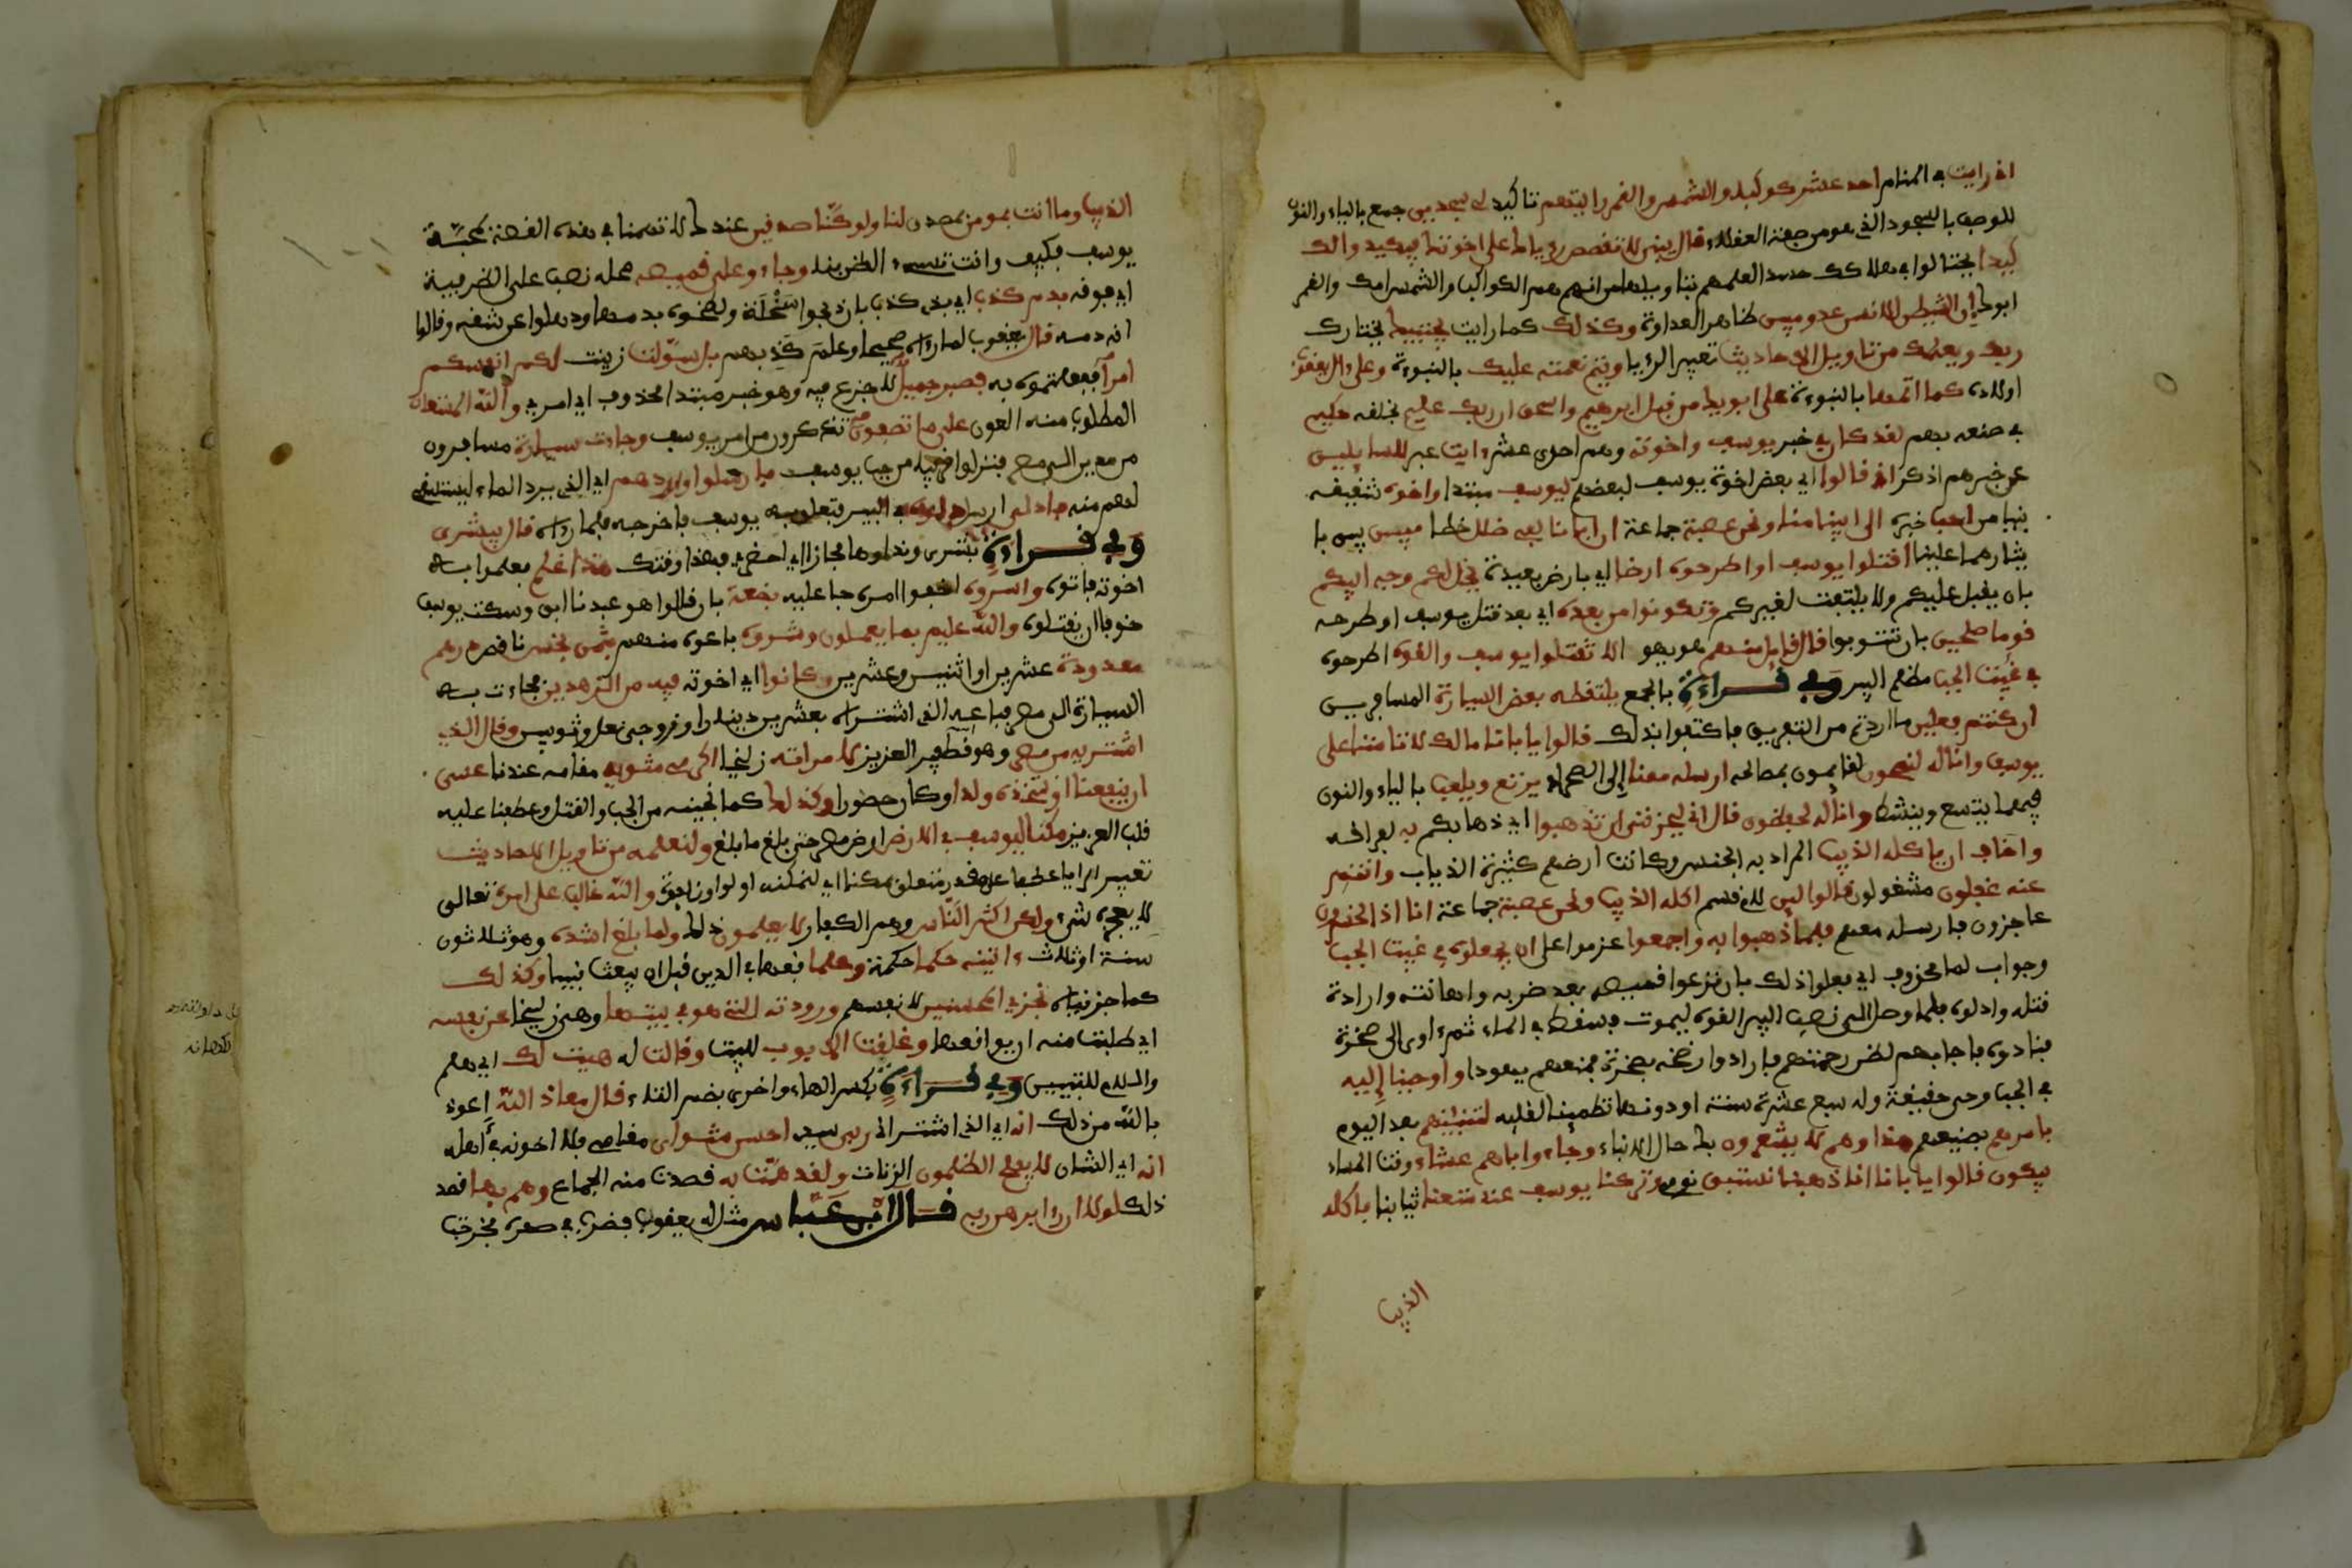 اني رايت في المنام احد عشر كوكبا والشمس والقمر رايتهم تاكيد لي سجدين جمع بالياء والنون
للوصف بالسجود الذي هو من صفة العقلاء قال يبني لا تقصص رءياك على اخوتك فيكيدوا لك
كيدا يحتالوا في هلاكك حسدا لعلمهم بتاويلها من انهم هم الكواكب والشمس امك والقمر
ابوك ان الشيطن للانسن عدو مبين ظاهر العداوة وكذلك كما رايت يجتبيك يختارك
ربك ويعلمك من تاويل الاحاديث تعبير الرءيا ويتم نعمته عليك بالنبوءة وعلى ءال يعقوب
اولاده كما اتمها بالنبوءة على ابويك من قبل ابرهيم واسحق ان ربك عليم بخلقه حكيم
في صنعه بهم لقد كان في خبر يوسف واخوته وهم احدى عشر ءايت عبر للسايلين
عن خبرهم اذكر اذ قالوا اي بعض اخوة يوسف لبعضهم ليوسف مبتدا واخوه شقيقه
بنيامن احب خبره الى ابينا منا ونحن عصبة جماعة ان ابانا لفي ضلل خطا مبين بين با
يثارهما علينا اقتلوا يوسف او اطرحوه ارضا اي بارض بعيدة يخل لكم وجه ابيكم
بان يقبل عليكم ولا يلتفت لغيركم وتكونوا من بعده اي بعد قتل يوسف او طرحه
قوما صلحين بان تتوبوا قال قايل منهم هو يهودا لا تقتلوا يوسف والقوه اطرحوه
في غيبت الجب مظلم البير وفي قراءة بالجمع يلتقطه بعض السيارة المسافرين
ان كنتم فعلين ما اردتم من التفريق فاكتفوا بذلك قالوا يابانا مالك لا تامنا على
يوسف وانا له لنصحون لقايمون بمصالحه ارسله معنا الى الصحراء يرتع ويلعب بالياء والنون
فيهما يتسع وينشط وانا له لحفظون قال اني ليحزنني ان تذهبوا اي ذهابكم به لفراقه
واخاف ان ياكله الذيب المراد به الجنس وكانت ارضهم كثيرة الذياب وانتم
عنه غفلون مشغولون قالوا لين لام قسم اكله الذيب ونحن عصبة جماعة انا اذا لخسرون
عاجزون فارسله معهم فلما ذهبوا به واجمعوا عزموا على ان يجعلوه في غيبت الجب
وجواب لما محذوف اي فعلوا ذلك بان نزعوا قميصه بعد ضربه واهانته وارادة
قتله وادلوه فلما وصل الى نصف البير القوه ليموت فسقط في الماء ثم ءاوى الى صخرة
فنادوه فاجابهم لظن رحمتهم فارادوا رضخه بصخرة فمنعهم يهودا واوحينا إليه
في الجب وحي حقيقة وله سبع عشرة سنة او دونها تطمينا لقلبه لتنبئنهم بعد اليوم
بامرهم بصنيعهم هذا وهم لا يشعرون بك حال الانباء وجاءو اباهم عشاء وقت المساء
يبكون قالوا يابانا انا ذهبنا نستبق نرمي وتركنا يوسف عند متعنا ثيابنا فاكله
الذيب
الذيب وما انت بمومن بمصدق لنا ولو كنا صدقين عندك لا تهمتنا في هذه القصة لمحبة
يوسف فكيف وانت تسيء الظن بنا وجاءو على قميصه محله نصب على الظرفية
اي فوقه بدم كذب اي ذي كذب بان ذبحوا سخلة ولطخوه بدمها وذهلوا عن شقه وقالوا
انه دمه قال يعقوب لما رءاه صحيحا وعلم كذبهم بل سولت زينت لكم انفسكم
امرا ففعلتموه به فصبر جميل لا جزع فيه وهو خبر مبتدا محذوف اي امري والله المستعان
المطلوب منه العون على ما تصفون تذكرون من امر يوسف وجاءت سيارة مسافرون
من مدين الى مصر فنزلوا قريبا من جب يوسف فارسلوا واردهم الذي يرد الماء ليستقي
لهم منه فادلى ارسل دلوه في البير فتعلق به يوسف فاخرجه فلما رءاه قال يبشرى
وفي قراءة بشرى ونداوها مجاز اي احضري فهذا وقتك هذا غلم فعلم به
اخوته فاتوه واسروه اخفوا امره جاعليه بضعة بان قالوا هو عبدنا ابق وسكت يوسف
خوفا ان يقتلوه والله عليم بما يعملون وشروه باعوه منهم بثمن بخس ناقص درهم
معدودة عشرين او اثنين وعشرين وكانوا اي اخوته فيه من الزهدين فجاءت به
السيارة الى مصر فباعه الذي اشتراه بعشرين دينارا وزوجي نعل وثوبين وقال الذي
اشتريه من مصر وهو قطفير العزيز لامراته زليخا اكرمي مثويه مقامه عندنا عسى
ان ينفعنا او نتخذه ولدا وكان حضورا وكذلك كما نجينه من الجب والقتل وعطفنا عليه
قلب العزيز مكنا ليوسف في الارض ارض مصر حتى بلغ ما بلغ ولنعلمه من تاويل الاحاديث
تعبير الرءيا عطف على مقدر متعلق بمكنا اي لنمكنه او الواو زايدة والله غالب على امره تعالى
لا يعجزه شيء ولكن اكثر الناس وهم الكفار لا يعلمون ذلك ولما بلغ اشده وهو ثلاثون
سنة او ثلاث ءاتينه حكما حكمة وعلما فقها في الدين قبل ان يبعث نبيا وكذلك
كما جزيناه نجزي المحسنين لانفسهم ورودته التي هو في بيتها وهي زليخا عن نفسه
اي طلبت منه ان يواقعها وغلقت الابوب للبيت وقالت له هيت لك اي هلم
واللام للتبيين وفي قراءة بكسر الهاء واخرى بضم التاء قال معاذ الله اعوذ
بالله من ذلك انه اي الذي اشتراني ربي سيدي احسن مثواي مقامي فلا اخونه في اهله
انه اي الشان لا يفلح الظلمون الزنات ولقد همت به قصدت منه الجماع وهم بها قصد
ذلك لولا ان رءا برهن ربه قال ابن عباس مثل له يعقوب فضرب في صدره فخرجت